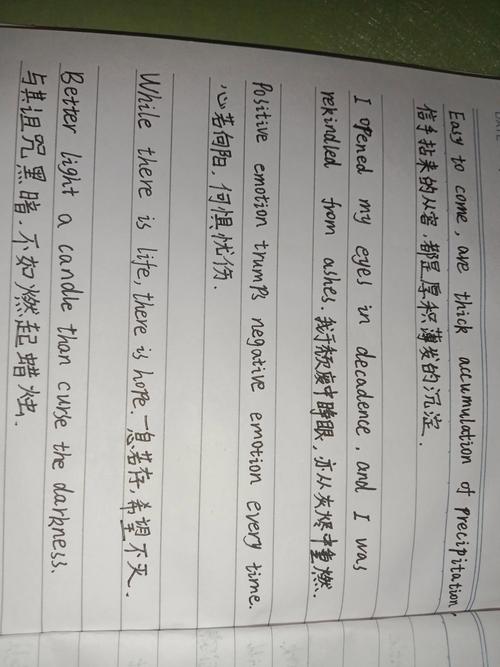 Easy to come, are thick accumulation of precipitation,
信手拈来的从容,都是厚积薄发的沉淀.
I opened my eyes in decadence, and I was
rekindled from ashes.我于颓废中睁眼,亦从灰烬中重燃.
Positive emotion trumps negative emotion every time.
心若向阳,何惧忧伤.
While there is life, there is hope.一息若存,希望不灭.
Better light a candle than curse the darkness.
与其诅咒黑暗.不如燃起蜡烛.